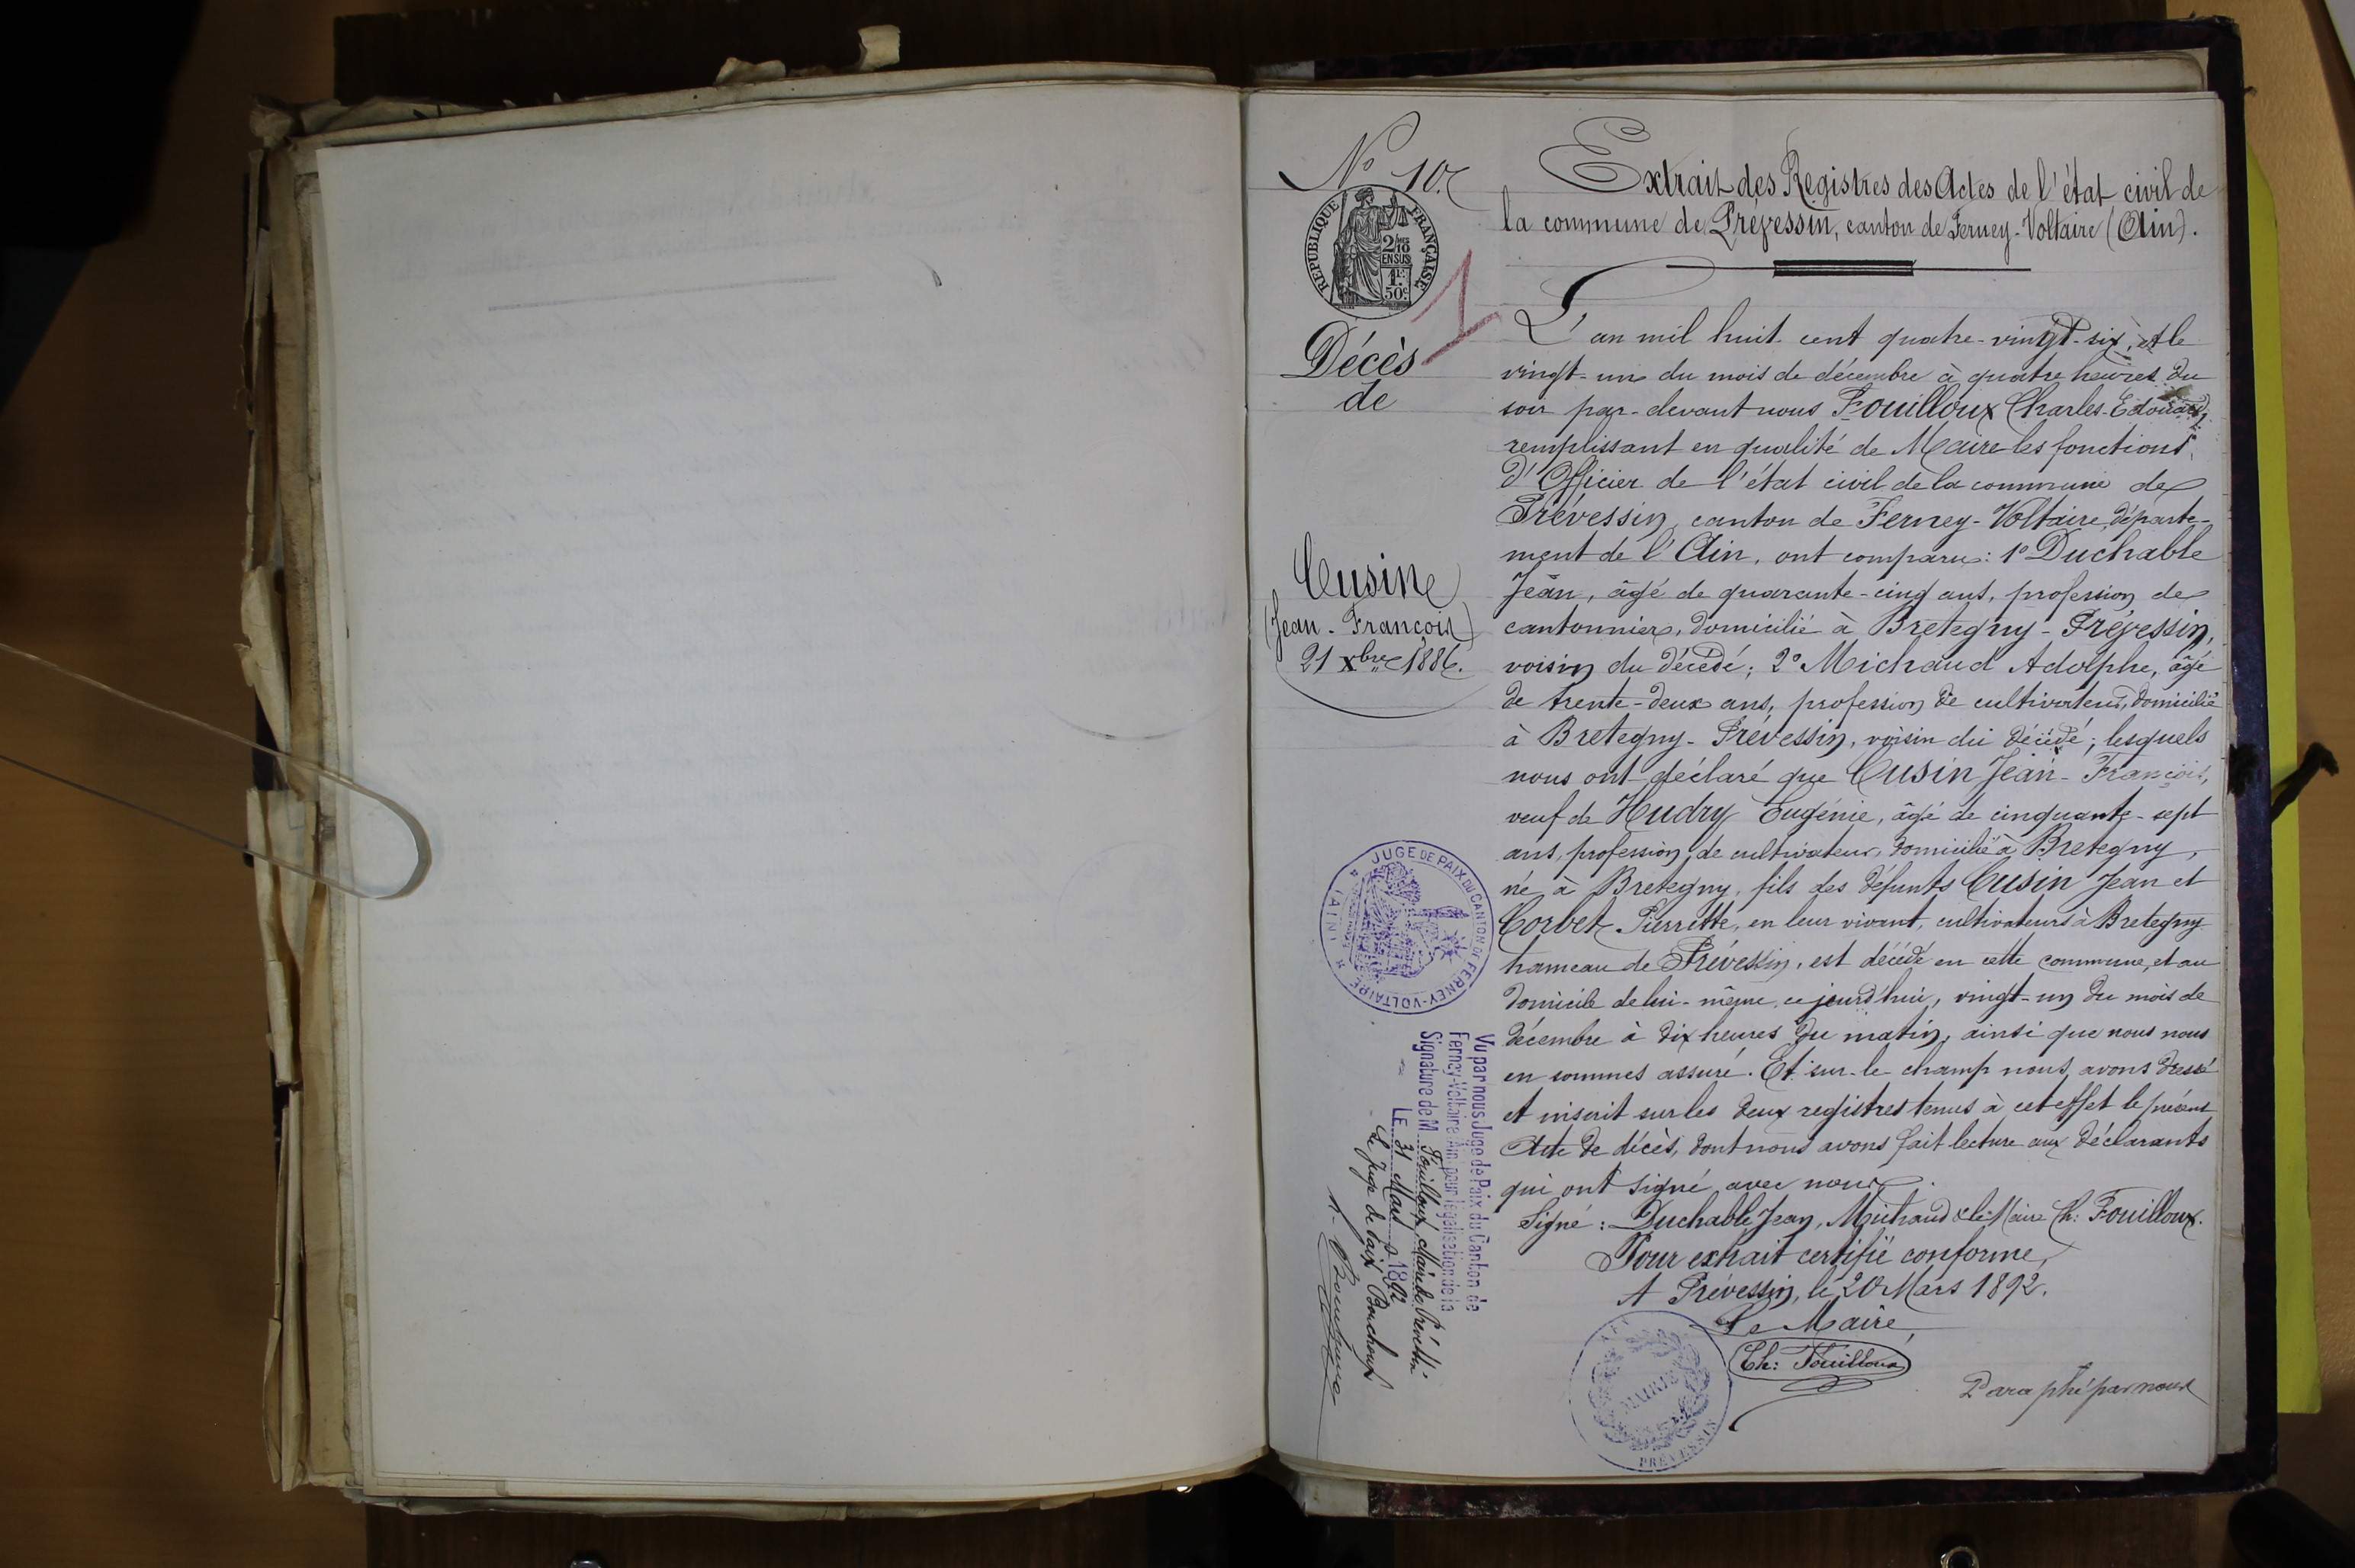 N° 10.
RÉPUBLIQUE FRANÇAISE
2/10 EN SUS
1F. 50c.
Décès
de
Cusin
(Jean-François)
21 Xbre 1886.
Extrait des Registres des Actes de l'état civil de
la commune de Prévessin, canton de Ferney-Voltaire (Ain).
L'an mil huit cent quatre-vingt-six, et le
vingt-un du mois de décembre à quatre heures du
soir par-devant nous Fouilloux Charles-Edouard,
remplissant en qualité de Maire les fonctions
d'Officier de l'état civil de la commune de
Prévessin, canton de Ferney-Voltaire, départe-
ment de l'Ain, ont comparu: 1° Duchable
Jean, âgé de quarante-cinq ans, profession de
cantonnier, domicilié à Bretegny-Prévessin,
voisin du décédé; 2° Michaud Adolphe, âgé
de trente-deux ans, profession de cultivateur, domicilié
à Bretegny-Prévessin, voisin du décédé; lesquels
nous ont déclaré que Cusin Jean-François,
veuf de Hudry Eugénie, âgé de cinquante-sept
ans, profession de cultivateur, domicilié à Bretegny,
né à Bretegny, fils des défunts Cusin Jean et
Corbet Pierrette, en leur vivant, cultivateurs à Bretegny
hameau de Prévessin, est décédé en cette commune, et au
domicile de lui-même, ce jourd'hui, vingt-un du mois de
décembre à dix heures du matin, ainsi que nous nous
en sommes assuré. Et sur-le champ nous avons dressé
et inscrit sur les deux registres tenus à cet effet le présent
Acte de décès, dont nous avons fait lecture aux déclarants
qui ont signé avec nous.
Signé: Duchable Jean, Michaud & le Maire Ch: Fouilloux.
Pour extrait certifié conforme,
A Prévessin, le 20 Mars 1892.
Le Maire,
Ch: Fouilloux
Paraphé par nous
MAIRIE
PRÉVESSIN
JUGE DE PAIX DU CANTON DE FERNEY-VOLTAIRE
(AIN)
Vu par nous Juge de Paix du Canton de
Ferney-Voltaire Ain pour légalisation de la
Signature de M Fouilloux, Maire de Prévessin
LE 31 Mars 1892
Le Juge de Paix